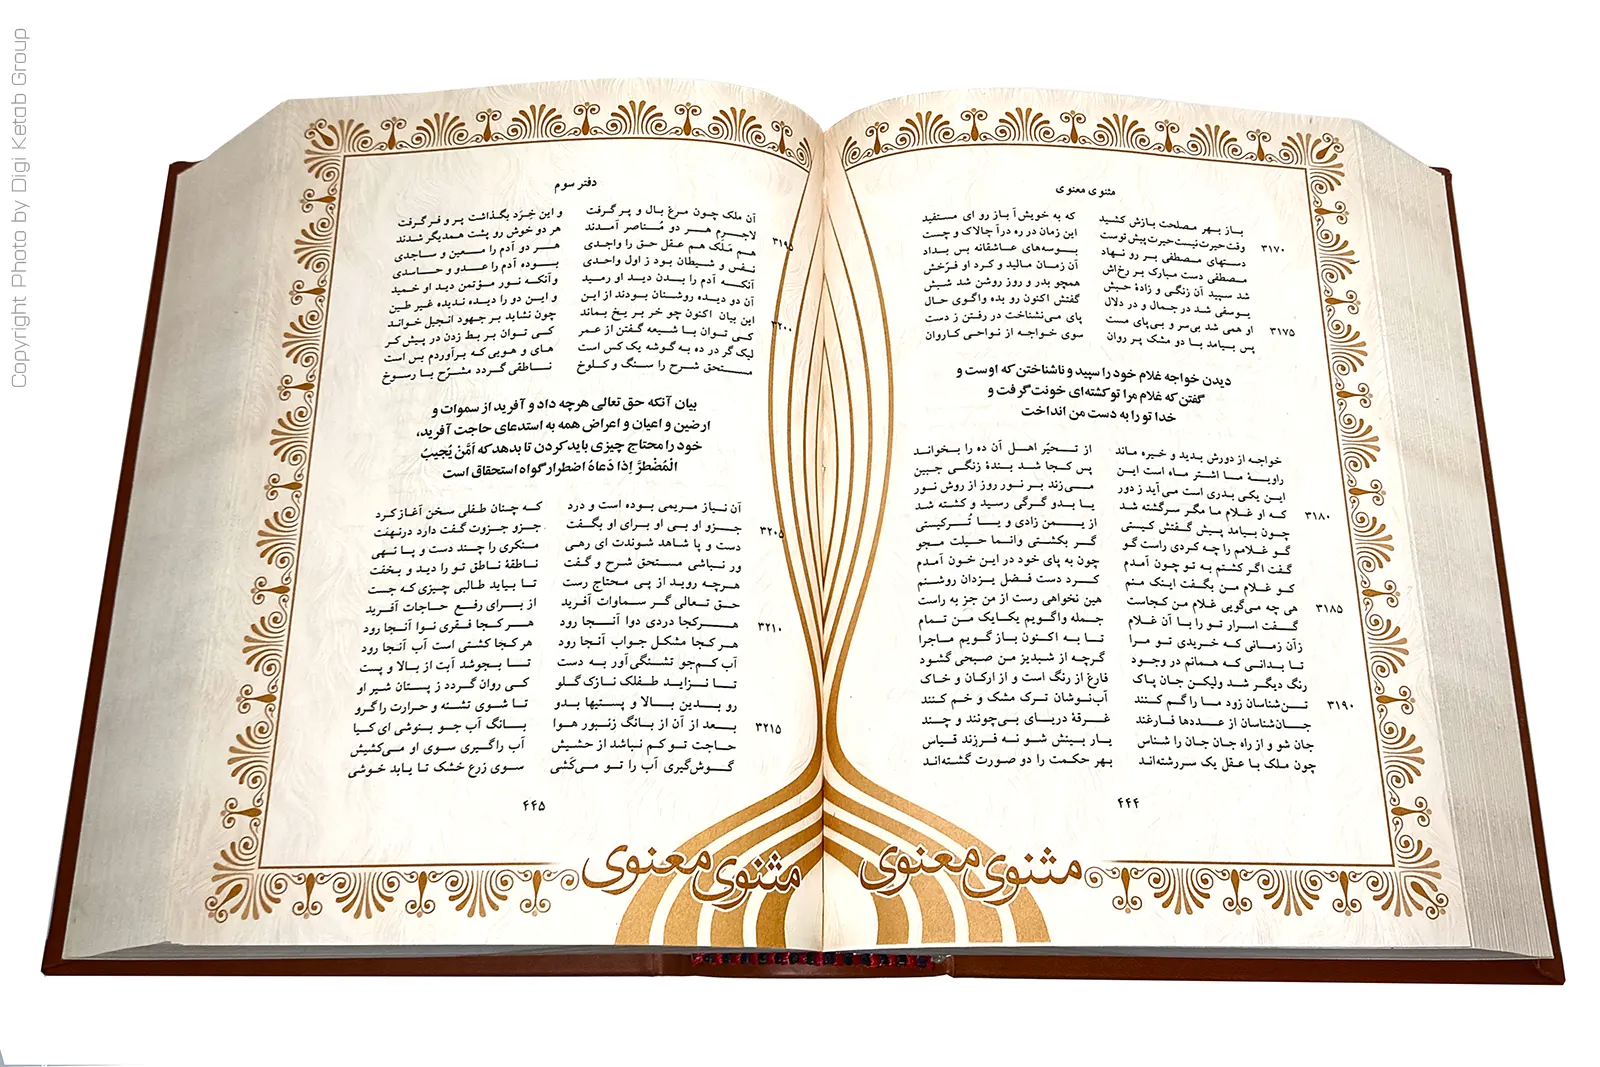 Copyright Photo by Digi Ketab Group
مثنوی معنوی
باز بهر مصلحت بازش کشید که به خویش آ باز رو ای مستفید
۳۱۷۰ وقت حیرت نیست حیرت پیش توست این زمان در ره درآ چالاک و چست
دستهای مصطفی بر رو نهاد بوسه‌های عاشقانه بس بداد
مصطفی دست مبارک بر رخ‌اش آن زمان مالید و کرد او فرّخش
شد سپید آن زنگی و زادهٔ حبش همچو بدر و روز روشن شد شبش
یوسفی شد در جمال و در دلال گفتش اکنون رو بده واگوی حال
۳۱۷۵ او همی شد بی‌سر و بی‌پای مست پای می‌نشناخت در رفتن ز دست
پس بیامد با دو مشک پر روان سوی خواجه از نواحی کاروان
دیدن خواجه غلام خود را سپید و ناشناختن که اوست و
گفتن که غلام مرا تو کشته‌ای خونت گرفت و
خدا تو را به دست من انداخت
خواجه از دورش بدید و خیره ماند از تحیّر اهل آن ده را بخواند
راویهٔ ما اشتر ماه است این پس کجا شد بندهٔ زنگی جبین
این یکی بدری است می‌آید ز دور می‌زند بر نور روز از روش نور
۳۱۸۰ که او غلام ما مگر سرگشته شد یا بدو گرگی رسید و کشته شد
چون بیامد پیش گفتش کیستی از یمن زادی و یا تُرکیستی
گو غلامم را چه کردی راست گو گر بکشتی وانما حیلت مجو
گفت اگر کشتم به تو چون آمدم چون به پای خود در این خون آمدم
کو غلام من بگفت اینک منم کرد دست فضل یزدان روشنم
۳۱۸۵ هی چه می‌گویی غلام من کجاست هین نخواهی رست از من جز به راست
گفت اسرار تو را با آن غلام جمله واگویم یکایک من تمام
زآن زمانی که خریدی تو مرا تا به اکنون باز گویم ماجرا
تا بدانی که همانم در وجود گرچه از شبدیز من صبحی گشود
رنگ دیگر شد ولیکن جان پاک فارغ از رنگ است و از ارکان و خاک
۳۱۹۰ تن‌شناسان زود ما را گم کنند آب‌نوشان ترک مشک و خم کنند
جان‌شناسان از عددها فارغند غرقهٔ دریای بی‌چونند و چند
جان شو و از راه جان جان را شناس یار بینش شو نه فرزند قیاس
چون ملک با عقل یک سررشته‌اند بهر حکمت را دو صورت گشته‌اند
۴۴۴
مثنوی معنوی
دفتر سوم
آن ملک چون مرغ بال و پر گرفت و این خِرَد بگذاشت پر و فر گرفت
۳۱۹۵ لاجرم هر دو مُناصر آمدند هر دو خوش رو پشت همدیگر شدند
هم مَلَک هم عقل حق را واجدی هر دو آدم را معین و ساجدی
نفس و شیطان بود ز اول واحدی بوده آدم را عدو و حاسدی
آنکه آدم را بدن دید او رمید وآنکه نور مؤتمن دید او خمید
آن دو دیده روشنان بودند از این و این دو را دیده ندیده غیر طین
۳۲۰۰ این بیان اکنون چو خر بر یخ بماند چون نشاید بر جهود انجیل خواند
کی توان با شیعه گفتن از عمر کی توان بر بط زدن در پیش کر
لیک گر در ده به گوشه یک کس است های و هویی که برآوردم بس است
مستحق شرح را سنگ و کلوخ ناطقی گردد مشرّح با رسوخ
بیان آنکه حق تعالی هرچه داد و آفرید از سموات و
ارضین و اعیان و اعراض همه به استدعای حاجت آفرید،
خود را محتاج چیزی باید کردن تا بدهد که اَمَّنْ یُجیبُ
الْمُضْطَرَّ اِذا دَعاهُ اضطرار گواه استحقاق است
آن نیاز مریمی بوده است و درد که چنان طفلی سخن آغاز کرد
۳۲۰۵ جزو او بی او برای او بگفت جزو جزوت گفت دارد در نهفت
دست و پا شاهد شوندت ای رهی منکری را چند دست و پا نهی
ور نباشی مستحق شرح و گفت ناطقهٔ ناطق تو را دید و بخفت
هرچه روید از پی محتاج رست تا بیابد طالبی چیزی که جست
حق تعالی گر سماوات آفرید از برای رفع حاجات آفرید
۳۲۱۰ هرکجا دردی دوا آنجا رود هر کجا فقری نوا آنجا رود
هرکجا مشکل جواب آنجا رود هر کجا کشتی است آب آنجا رود
آب کم‌جو تشنگی آور به دست تا بجوشد آبت از بالا و پست
تا نزاید طفلک نازک گلو کی روان گردد ز پستان شیر او
رو بدین بالا و پستیها بدو تا شوی تشنه و حرارت را گرو
۳۲۱۵ بعد از آن از بانگ زنبور هوا بانگ آب جو بنوشی ای کیا
حاجت تو کم نباشد از حشیش آب را گیری سوی او می‌کشیش
گوش‌گیری آب را تو می‌کَشی سوی زرع خشک تا یابد خوشی
۴۴۵
مثنوی معنوی